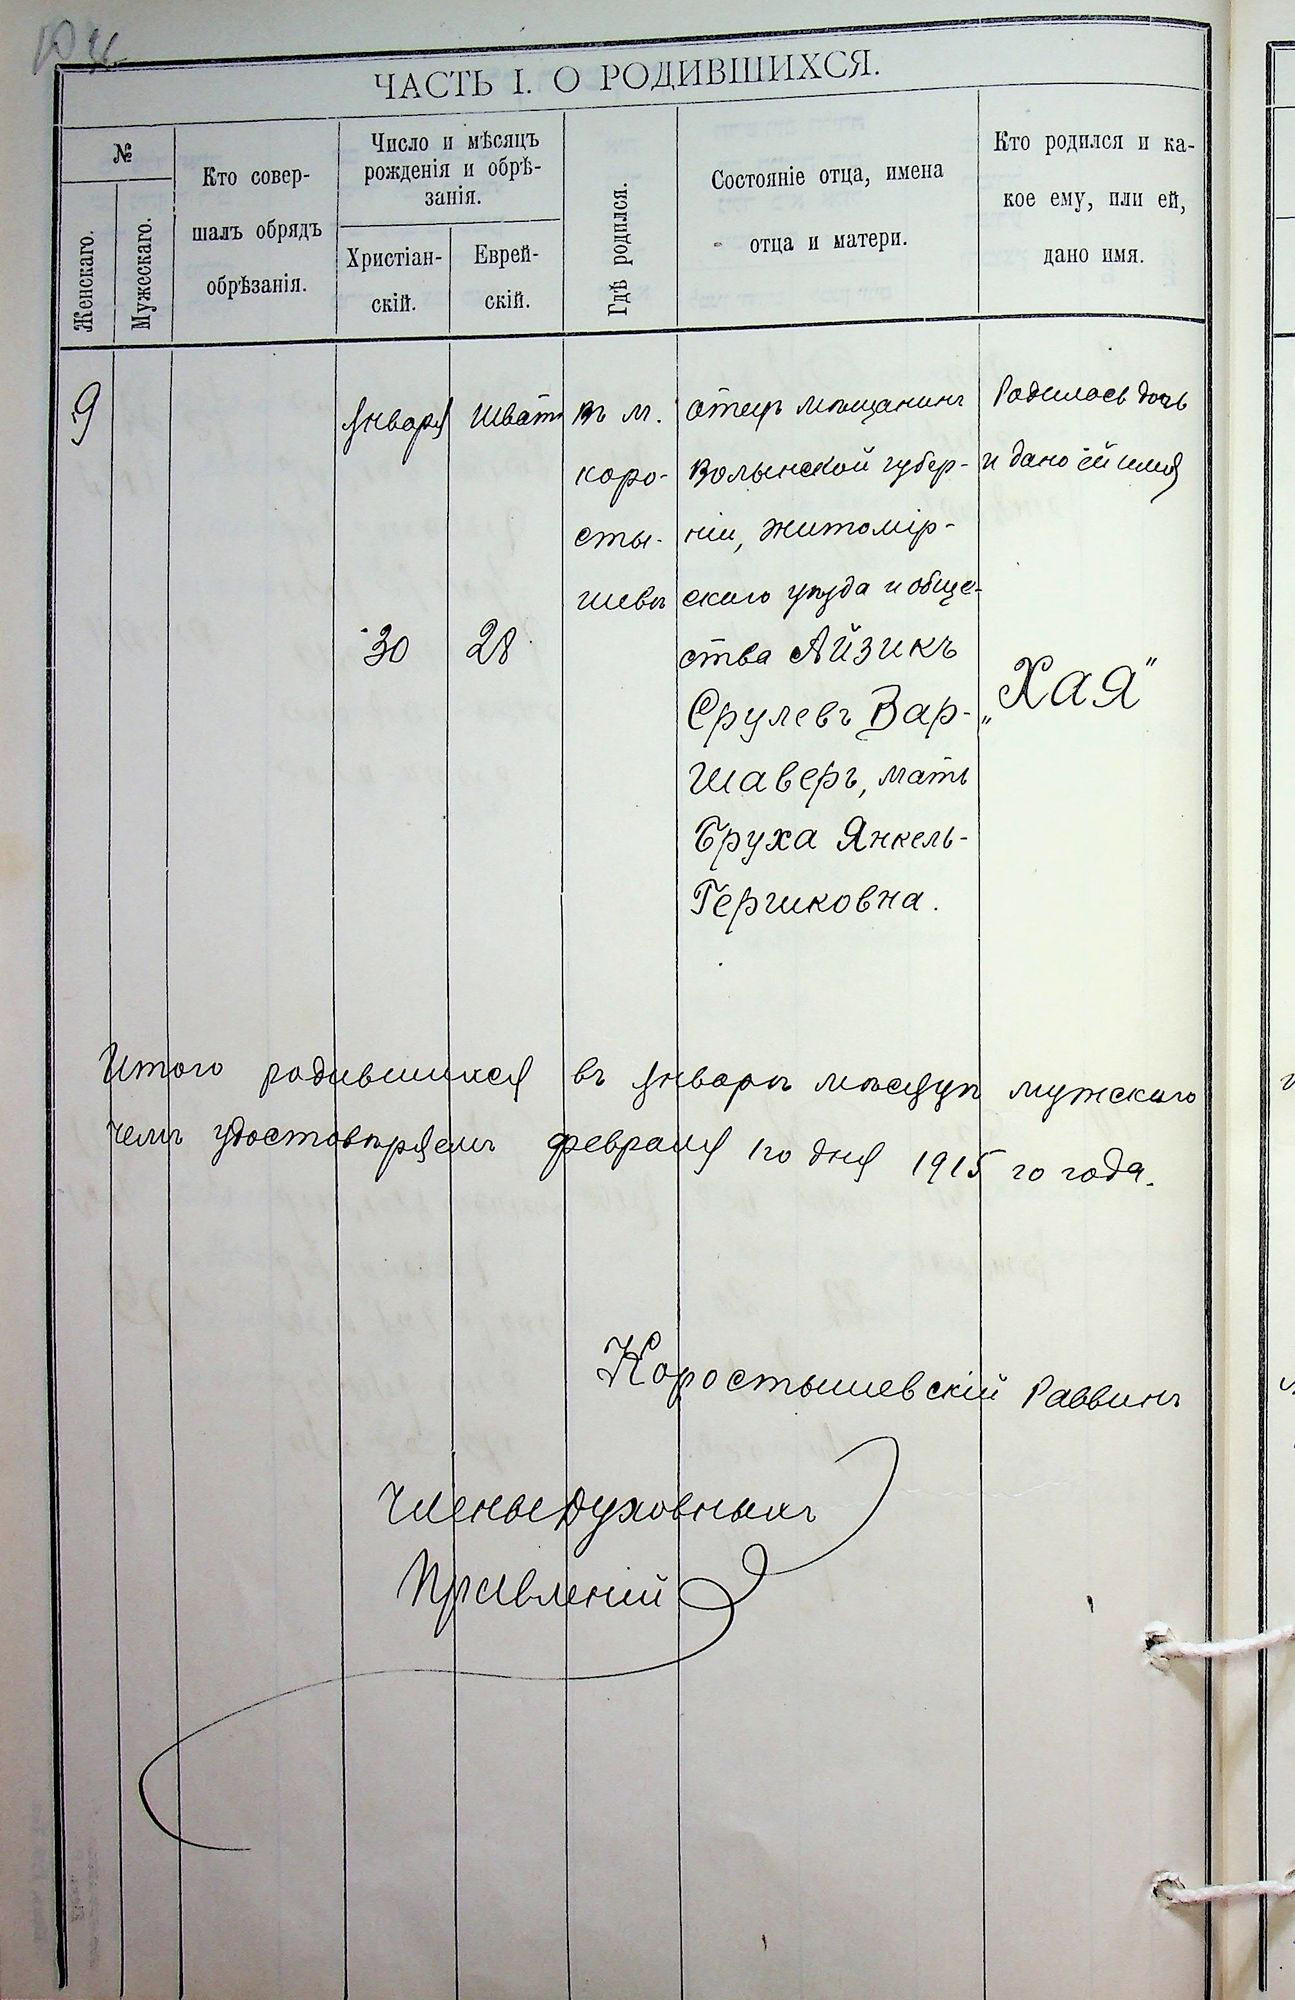 ЧАСТЬ I. О РОДИВШИХСЯ.
№
Женскаго.
Мужескаго.
Кто совер-
шалъ обрядъ
обрѣзанія.
Число и мѣсяцъ
рожденія и обрѣ-
занія.
Христіан-
скій.
Еврей-
скій.
Гдѣ родился.
Состояніе отца, имена
отца и матери.
Кто родился и ка-
кое ему, или ей,
дано имя.
9
Января
30
Шватъ
28
въ м.
Коро-
сты-
шевѣ
Отецъ мѣщанинъ
Волынской губер-
ніи, Житомір-
скаго уѣзда и обще-
ства Айзикъ
Срулевъ Вар-
шаверъ, мать
Бруха Янкель-
Гершковна.
Родилась дочь
и дано ей имя
„Хая"
Итого родившихся въ Январѣ мѣсяцѣ мужскаго
чемъ удостовѣряемъ Февраля 1го дня 1915 го года.
Коростышевскій Раввинъ
Члены Духовныхъ
Правленій